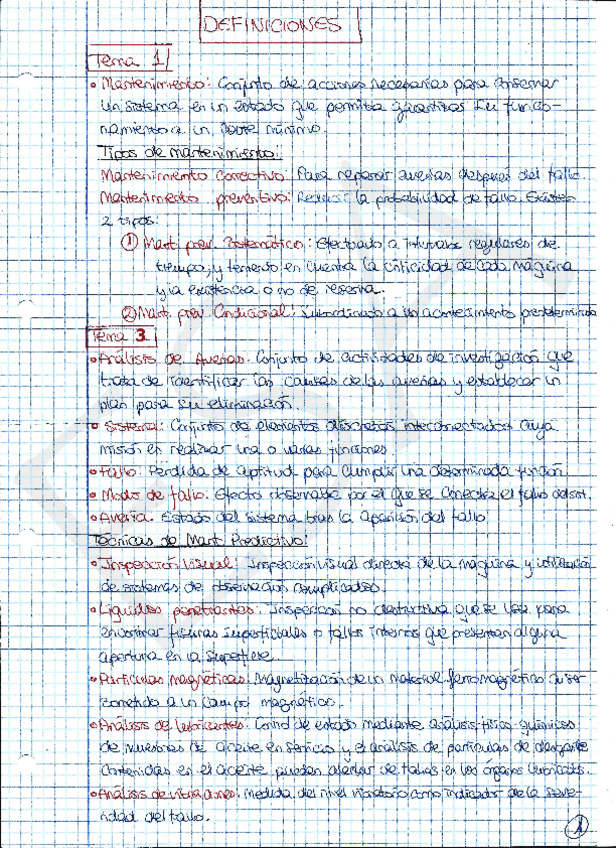 DEFINICIONES
Tema 1
• Mantenimiento: Conjunto de acciones necesarias para conservar
un sistema en un estado que permita garantizar su funcio-
namiento a un coste mínimo.
Tipos de mantenimiento:
Mantenimiento correctivo: Para reparar averías después del fallo.
Mantenimiento preventivo: Reducir la probabilidad de fallo. Existen
2 tipos:
① Mant. prev. Sistemático: Efectuado a intervalos regulares de
tiempo, y teniendo en cuenta la criticidad de cada máquina
y la existencia o no de reserva.
② Mant. prev. Condicional: Subordinado a un acontecimiento predeterminado
Tema 3
• Análisis de Averías. Conjunto de actividades de investigación que
trata de identificar las causas de las averías y establecer un
plan para su eliminación.
• Sistema: Conjunto de elementos discretos interconectados cuya
misión es realizar una o varias funciones.
• Fallo: Perdida de aptitud para cumplir una determinada función.
• Modo de fallo: Efecto observable por el que se conecta el fallo
• Avería. Estado del sistema tras la aparición del fallo.
Técnicas de Mant. Predictivo:
• Inspección Visual: Inspección visual directa de la máquina y utilización
de sistemas de observación complicados.
• Liquidos penetrantes: Inspección no destructiva que se usa para
encontrar fisuras superficiales o fallos internos que presentan alguna
apertura en la superficie.
• Partículas magnéticas: Magnetización de un material ferromagnético al ser
sometido a un campo magnético.
• Análisis de lubricantes: Control de estado mediante análisis físico-químicos
de muestras de aceite en servicio y el análisis de partículas de desgaste
contenidas en el aceite, pueden alertar de fallos en los órganos lubricados.
• Análisis de vibraciones: medida del nivel vibratorio como indicador de la seve-
ridad del fallo.
1